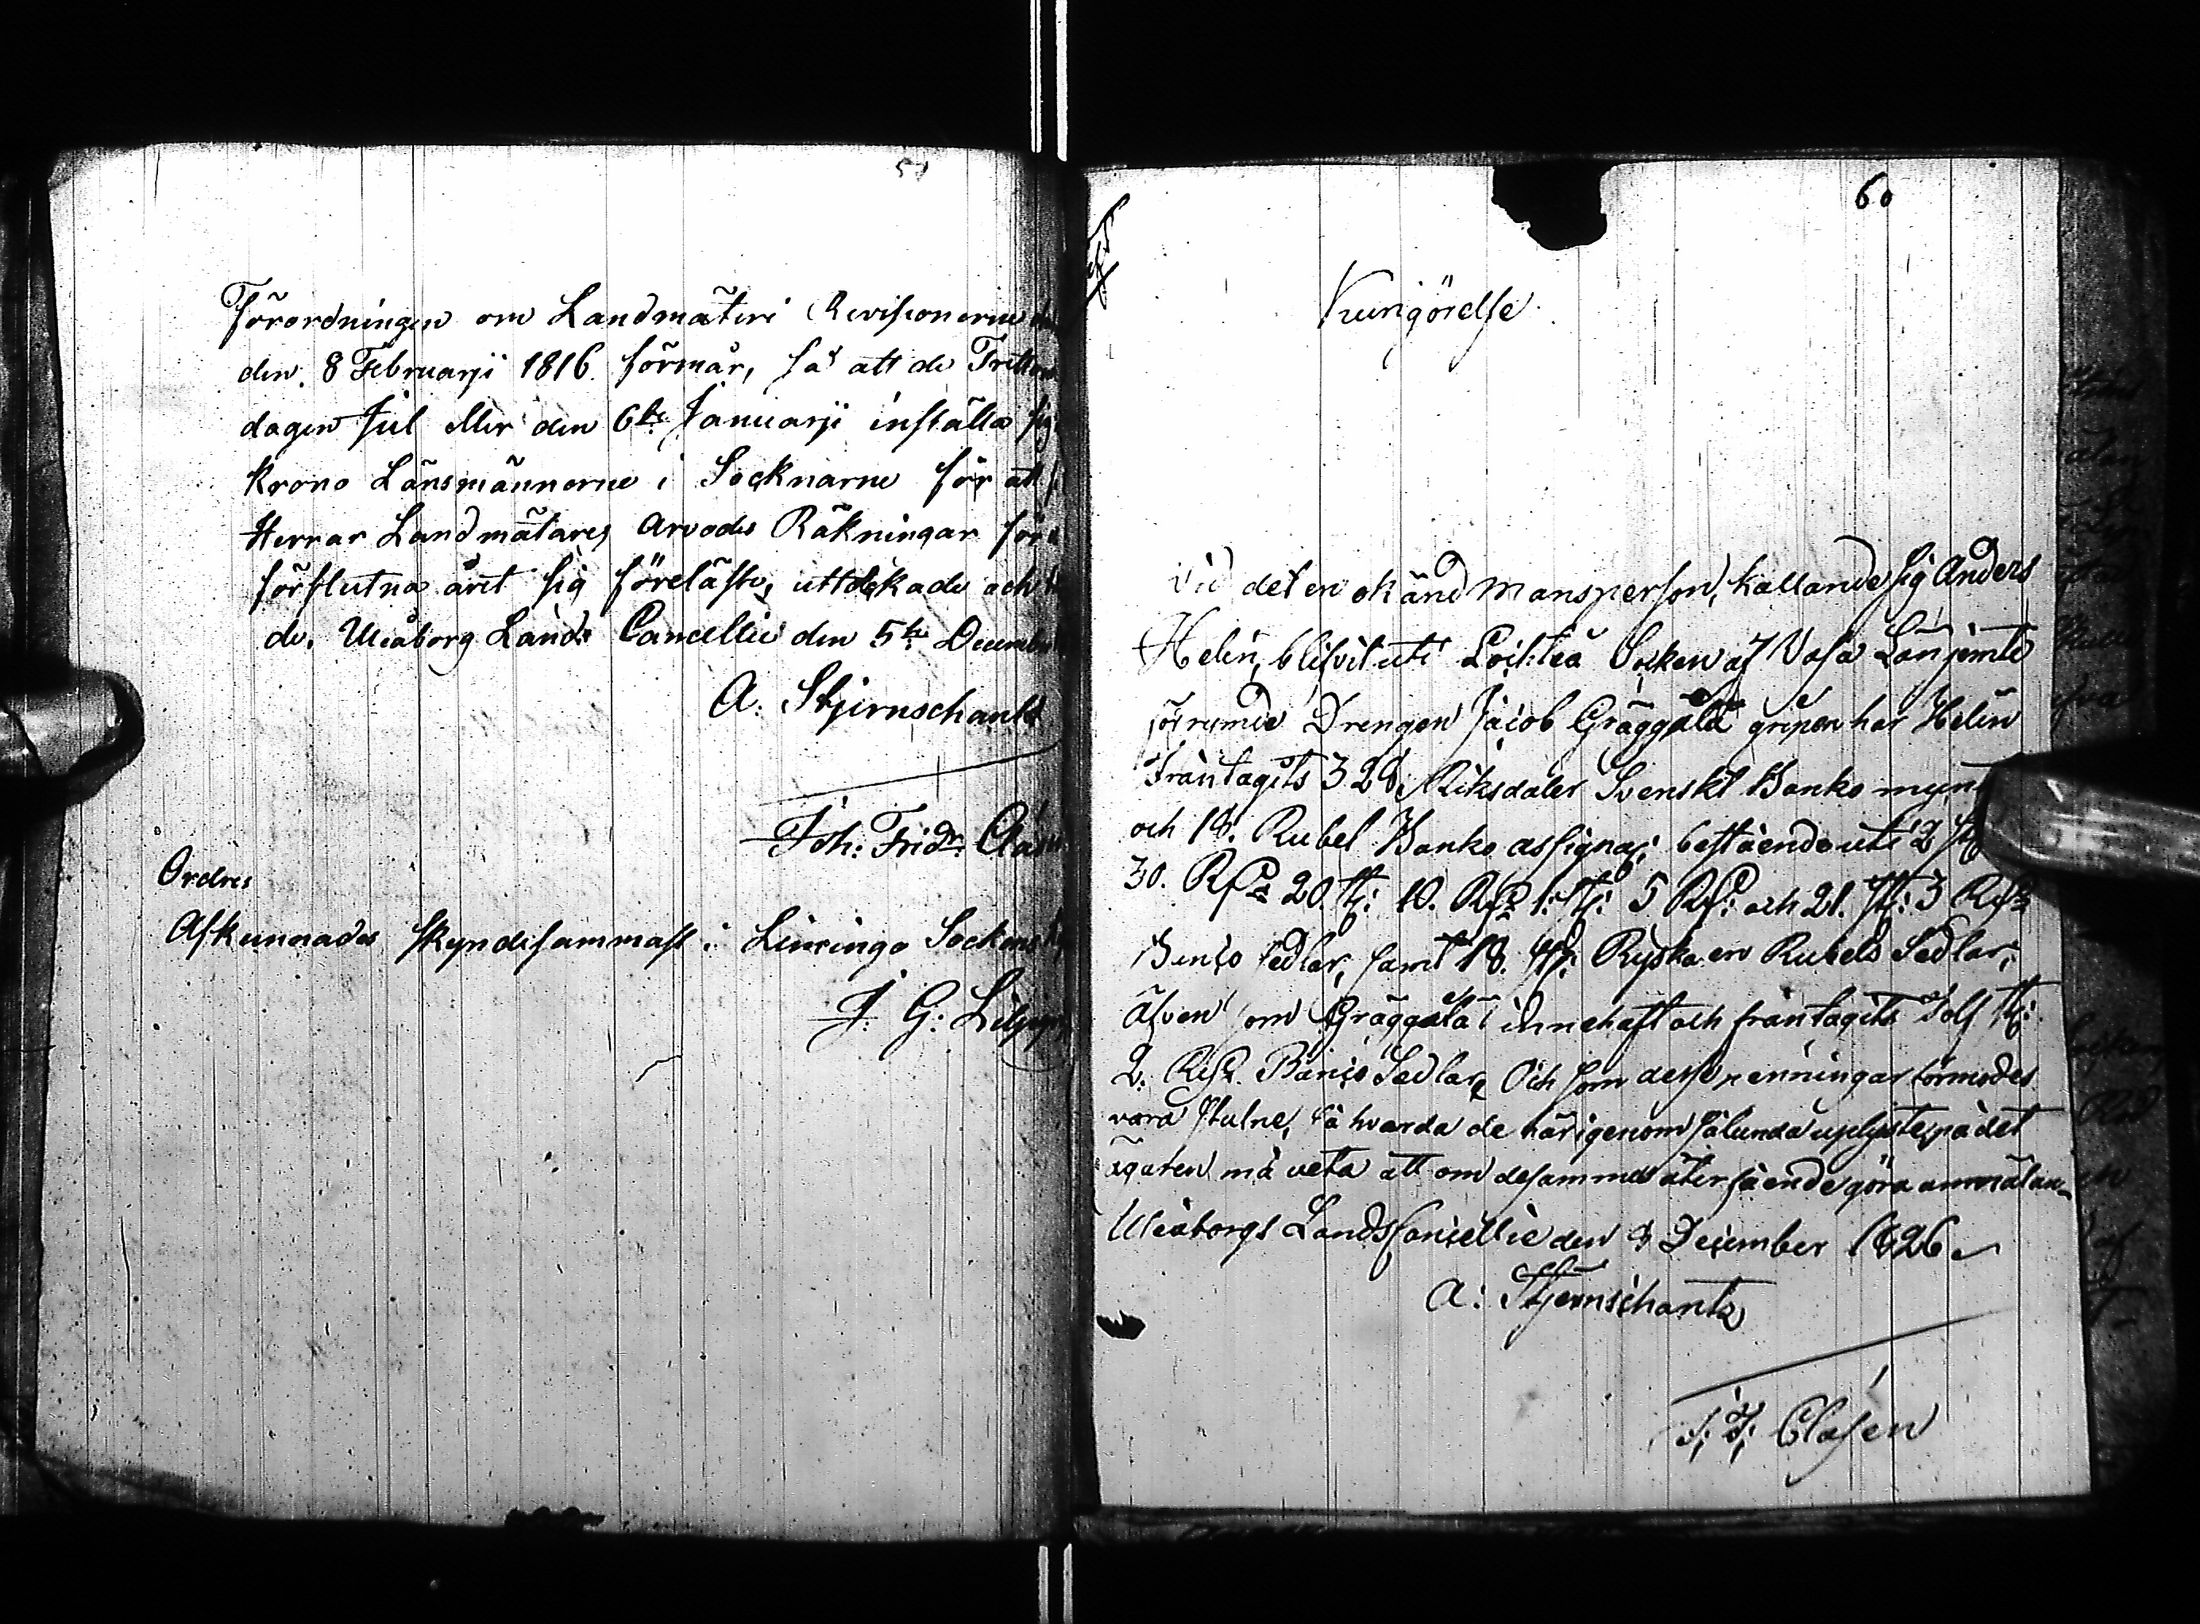 Förordningen om Landmäteri Revisionerne
den 8 Februarji 1816 förmår, så att de Tretton
dagen Jul eller den 6te Januarji inställa sig
Krono Länsmännerne i Socknarne för att
Herrar Landmätares Arvodes Räkningar för
förflutna året sig föreläste, uttäkade och
de. Uleåborg Lands Cancellie den 5te December
A. Stjernschantz
Joh: Fridr: Clasén
Ordres
Afkunnades skyndesammast i Limingo Sockens
J: G:
60
Kungörelse
Vid det en okänd Mansperson, kallande sig Anders
Helin, blifvit uti Lochteå Socken af Vasa Län jemte
förrymde Drengen Jacob Gräggälä gripen har Helin
fråntagits 328 Riksdaler Svenskt Banko mynt
och 18. Rubel Banko assigna: bestående uti 2 st:
30. Rsd: 20. st: 10. Rsd: 1: st: 5 Rd: och 21. st: 3 Rsd:
Banco sedlar, samt 18. st: Ryska en Rubels Sedlar;
äfven som Gräggälä innehaft och fråntagits Tolf st:
2. Rsd: Banco Sedlar, Och som desse penningar förmodes
vara stulne, så hvarda de härigenom sålunda uplyste, på det
ägaren må veta att om desammes återfående göra anmälan
Uleåborgs Lands Cancellie den 9 December 1826
A: Stjernschantz
J: F: Clasén